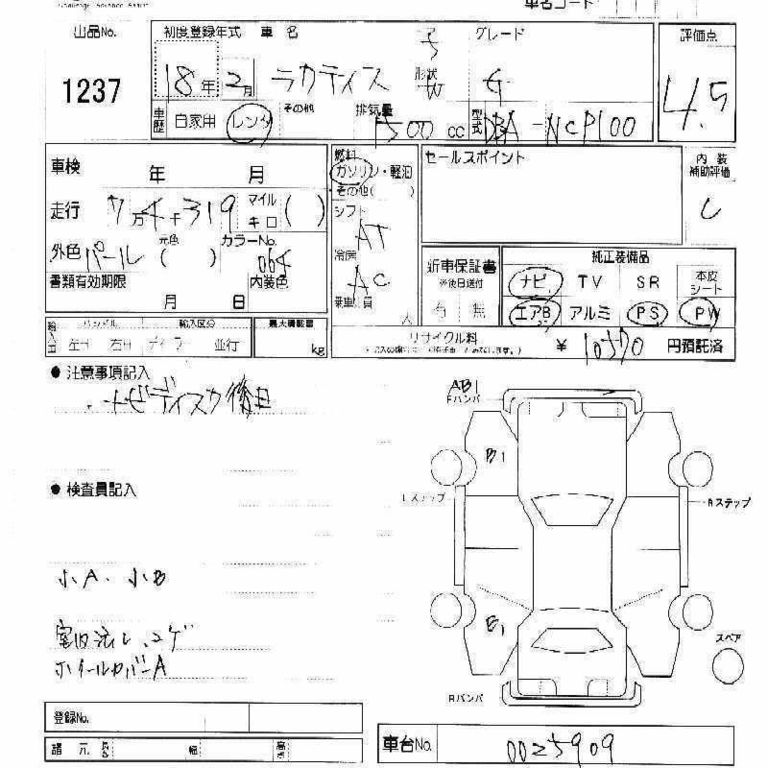 車名コード
出品No.
1237
初度登録年式 車名 グレード
18年2月 ラクティス 5 形状 W G
評価点
4.5
車歴 自家用 レンタ その他 排気量 1500 cc 型式 DBA-NCP100
車検 年 月
走行 7万4千319 マイル キロ ( )
外色 パール 元色 ( ) カラーNo. 064
書類有効期限 月 日 内装色
燃料 ガソリン・軽油
その他( )
シフト AT
冷房 AC
乗車定員 人
セールスポイント
内装補助評価
C
新車保証書
※後日送付
有 無
純正装備品
ナビ TV SR 本皮シート
エアB アルミ PS PW
輸入車 ハンドル 輸入区分
左H 右H ディーラ 並行
最大積載量
kg
リサイクル料
¥ 10570 円預託済
● 注意事項記入
・ナビディスク後日
● 検査員記入
小A・小B
室内汚レ、コゲ
ホイールカバーA
AB1
Fバンパ
B1
Lステップ
Rステップ
E1
スペア
Rバンパ
登録No.
諸元 長さ 幅 高さ
車台No. 0025909